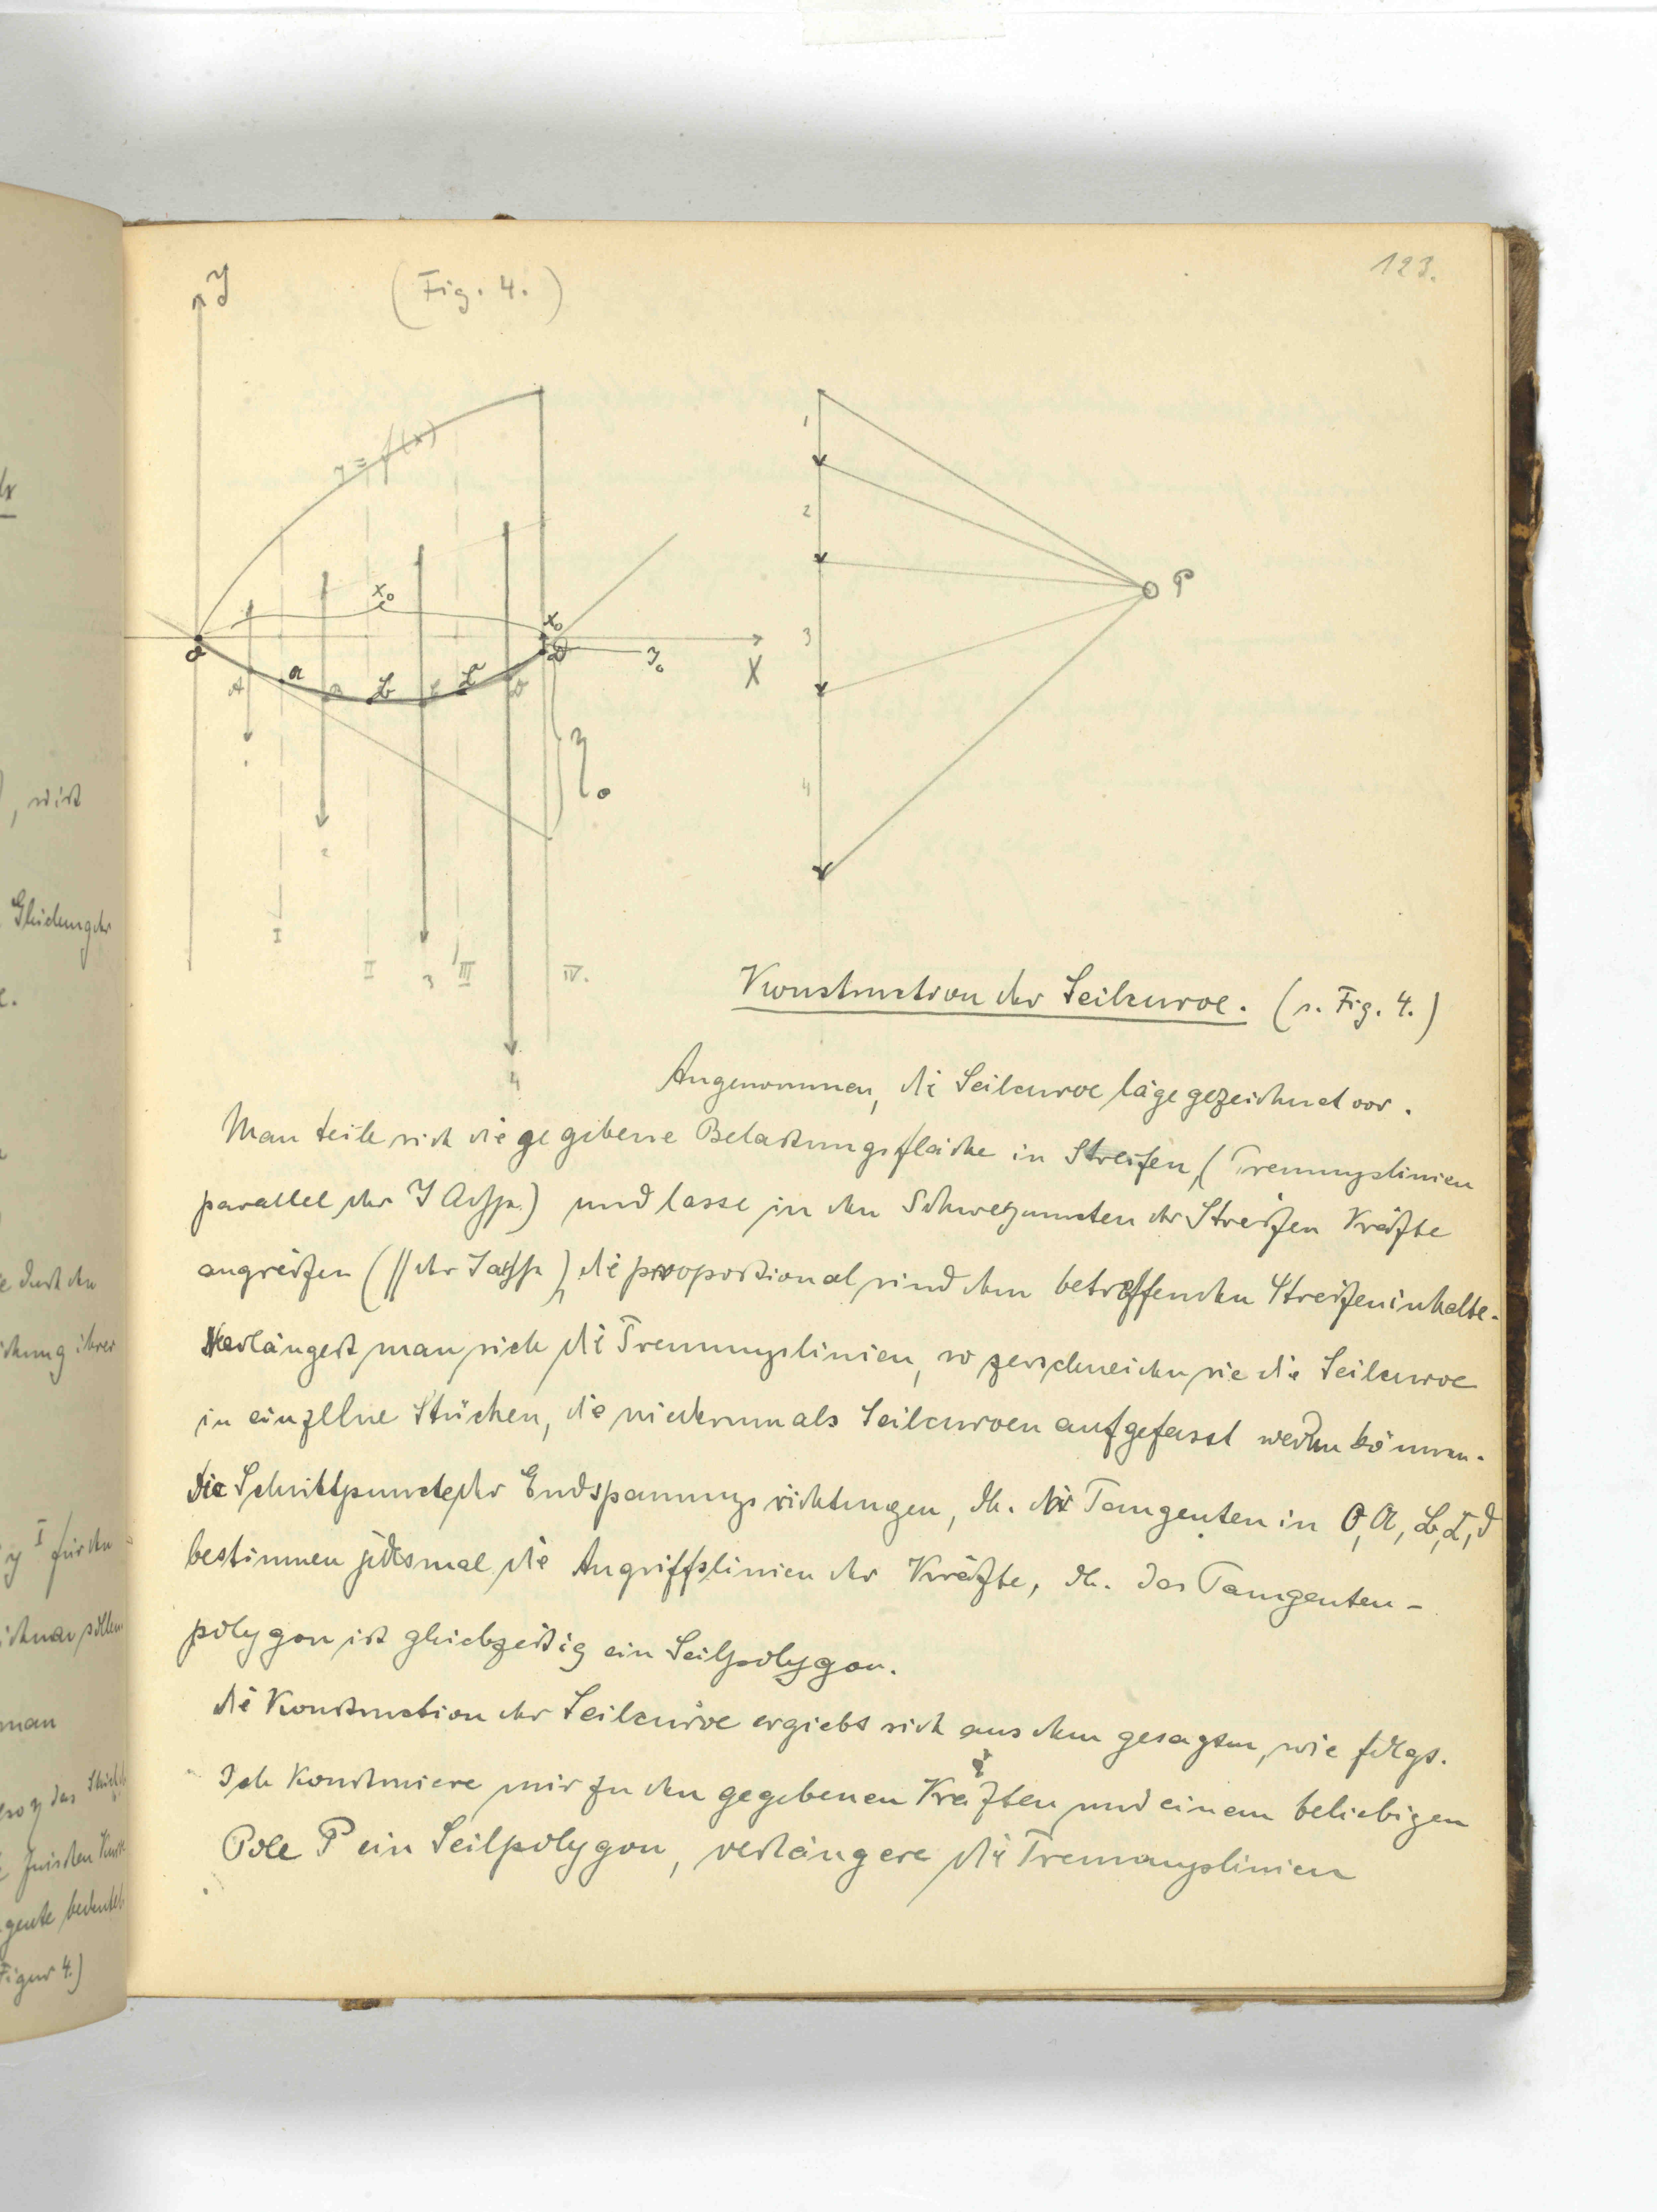 123.
(Fig. 4.)
Y
y = f(x)
x₀
x₀
y₀
X
O
A
a
B
b
C
c
D
η₀
1
2
3
4
I
II
III
IV.
1
2
3
4
P
Konstruction der Seilcurve. (s. Fig. 4.)
Angenommen, die Seilcurve läge gezeichnet vor.
Man teile sich die gegebene Belastungsfläche in Streifen, (Trennungslinien
parallel der Y Achse) und lasse in den Schwerpuncten der Streifen Kräfte
angreifen (|| der Yachse), die proportional sind dem betreffenden Streifeninhalte.
Verlängert man sich die Trennungslinien, so zerschneiden sie die Seilcurve
in einzelne Stücken, die wiederum als Seilcurven aufgefasst werden können.
Die Schnittpuncte der Endspannungsrichtungen, dh. die Tangenten in O, A, B, C, D
bestimmen jedesmal die Angriffslinien der Kräfte, dh. das Tangenten-
polygon ist gleichzeitig ein Seilpolygon.
Die Konstruction der Seilcurve ergiebt sich aus dem gesagten, wie folgt.
Ich konstruiere mir zu den gegebenen Kräften und einem beliebigen
Pole P ein Seilpolygon, verlängere die Trennungslinien
, wird
Gleichung der
durch den
ihrer
für den
man
das
zwischen
bedeutet
Figur 4.)